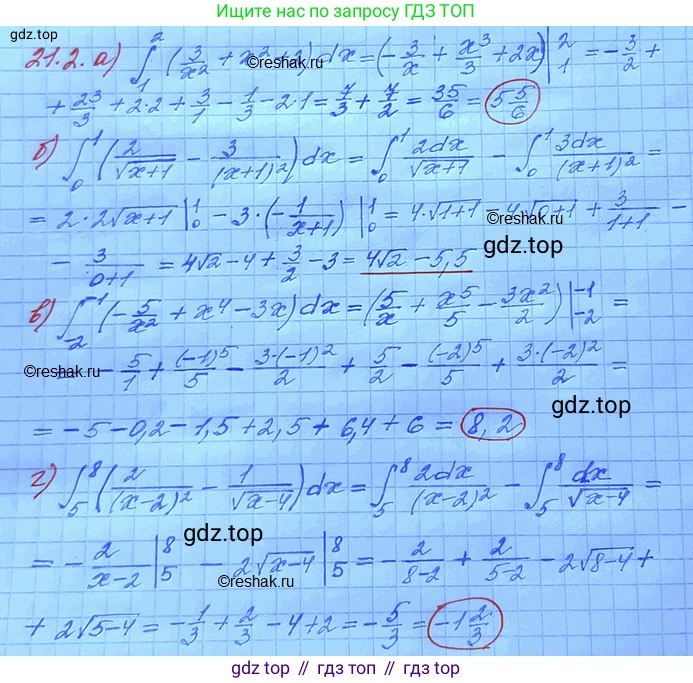 Ищите нас по запросу ГДЗ ТОП
gdz.top
21.2. а) ∫₁² (3/x² + x² + 2) dx = (-3/x + x³/3 + 2x) |₁² = -3/2 +
+ 23/3 + 2·2 + 3/1 - 1/3 - 2·1 = 7/3 + 7/2 = 35/6 = 5 5/6
©reshak.ru
©reshak.ru
б) ∫₀¹ (2/√(x+1) - 3/(x+1)²) dx = ∫₀¹ 2dx/√(x+1) - ∫₀¹ 3dx/(x+1)² =
= 2·2√(x+1) |₀¹ - 3·(-1/(x+1)) |₀¹ = 4·√(1+1) = 4√(0+1) + 3/(1+1) -
©reshak.ru
gdz.top
- 3/(0+1) = 4√2 - 4 + 3/2 - 3 = 4√2 - 5,5
в) ∫₋₂⁻¹ (-5/x² + x⁴ - 3x) dx = (5/x + x⁵/5 - 3x²/2) |₋₂⁻¹ =
©reshak.ru
- 5/1 + (-1)⁵/5 - 3·(-1)²/2 + 5/2 - (-2)⁵/5 + 3·(-2)²/2 =
gdz.top
= -5 - 0,2 - 1,5 + 2,5 + 6,4 + 6 = 8,2
г) ∫₅⁸ (2/(x-2)² - 1/√(x-4)) dx = ∫₅⁸ 2dx/(x-2)² - ∫₅⁸ dx/√(x-4) =
gdz.top
= -2/(x-2) |₅⁸ - 2√(x-4) |₅⁸ = -2/(8-2) + 2/(5-2) - 2√(8-4) +
©reshak.ru
+ 2√(5-4) = -1/3 + 2/3 - 4 + 2 = -5/3 = -1 2/3
©reshak.ru
gdz.top // гдз топ // гдз.топ